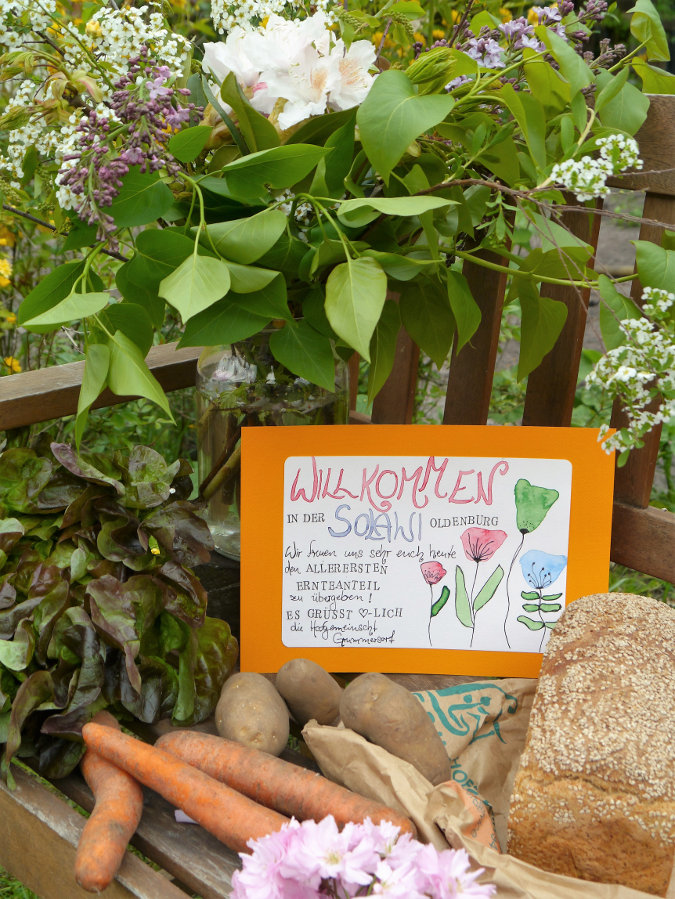 WILLKOMMEN
IN DER SOLAWI OLDENBURG
Wir freuen uns sehr euch heute
den ALLERERSTEN
ERNTEANTEIL
zu übergeben!
ES GRÜSST ♡-LICH
die Hofgemeinschft
Grummersort